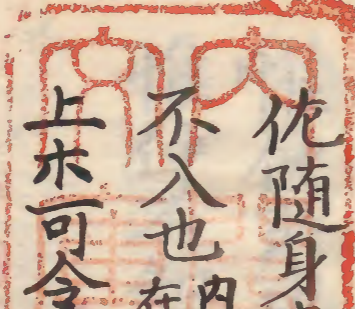 佐随身
不入也
内
在
上木可令